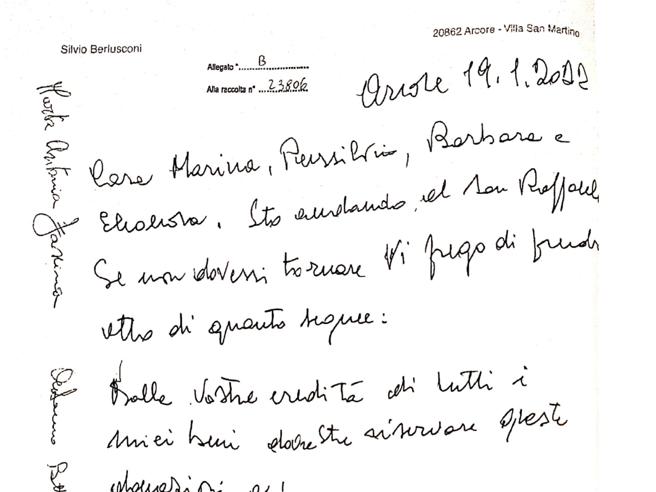 Silvio Berlusconi
20862 Arcore - Villa San Martino
Allegato "...B...
Alla raccolta n° ...23806
Arcore 19.1.2022
Cara Marina, Piersilvio, Barbara e
Eleonora. Sto andando al San Raffaele
Se non dovessi tornare Vi prego di prende
atto di quanto segue:
Dalle Vostre eredità di tutti i
miei beni dovreste riservare queste
donazioni
Maria Antonia